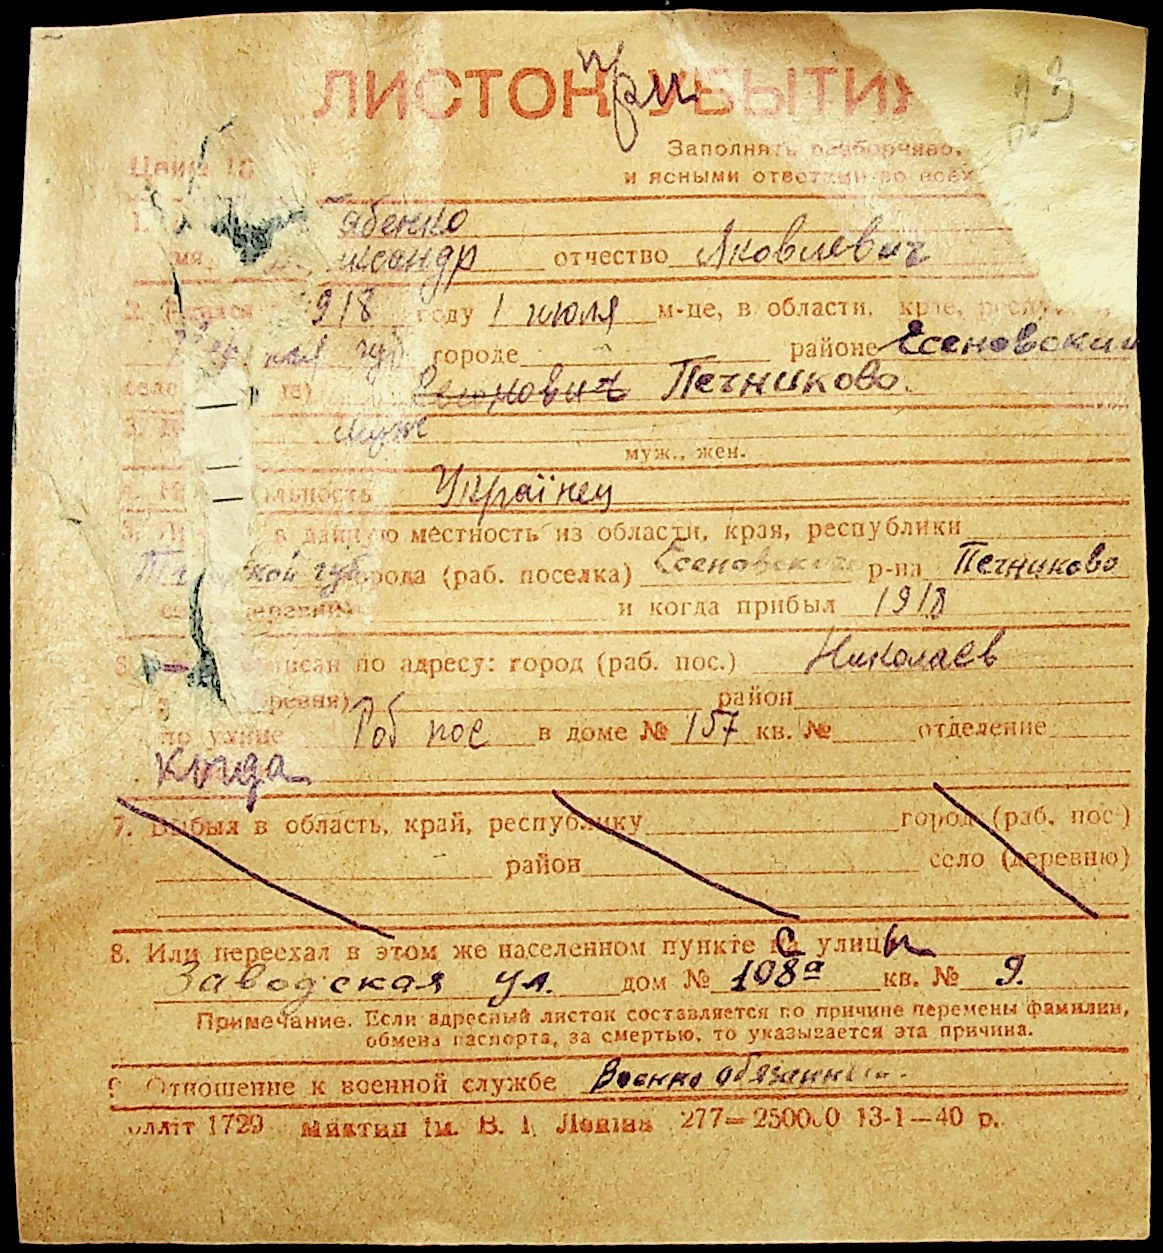 ЛИСТОК при УБЫТИЯ
23
Заполнять разборчиво,
и ясными ответами во всех
Цена 10
1. Бабенко
имя, ександр отчество Яковлевич
2. 918 году 1 июля м-це, в области, крае, респу
кая губ городе районе Есеновский
село Печниково.
3. Муж
муж., жен.
льность Українец
в данную местность из области, края, республики
кой губ города (раб. поселка) Есеновский р-на Печниково
и когда прибыл 1918
6. писан по адресу: город (раб. пос.) Николаев
ревня) район
по улице Роб пос в доме № 157 кв. № отделение
Когда
7. Выбыл в область, край, республику город (раб. пос.)
район село (деревню)
8. Или переехал в этом же населенном пункте С улицы
Заводская ул. дом № 108а кв. № 9.
Примечание. Если адресный листок составляется по причине перемены фамилии,
обмена паспорта, за смертью, то указывается эта причина.
9. Отношение к военной службе Военно обязанный.
лліт 1729 ім. В. І. Леніна 277—250000 13-1—40 р.